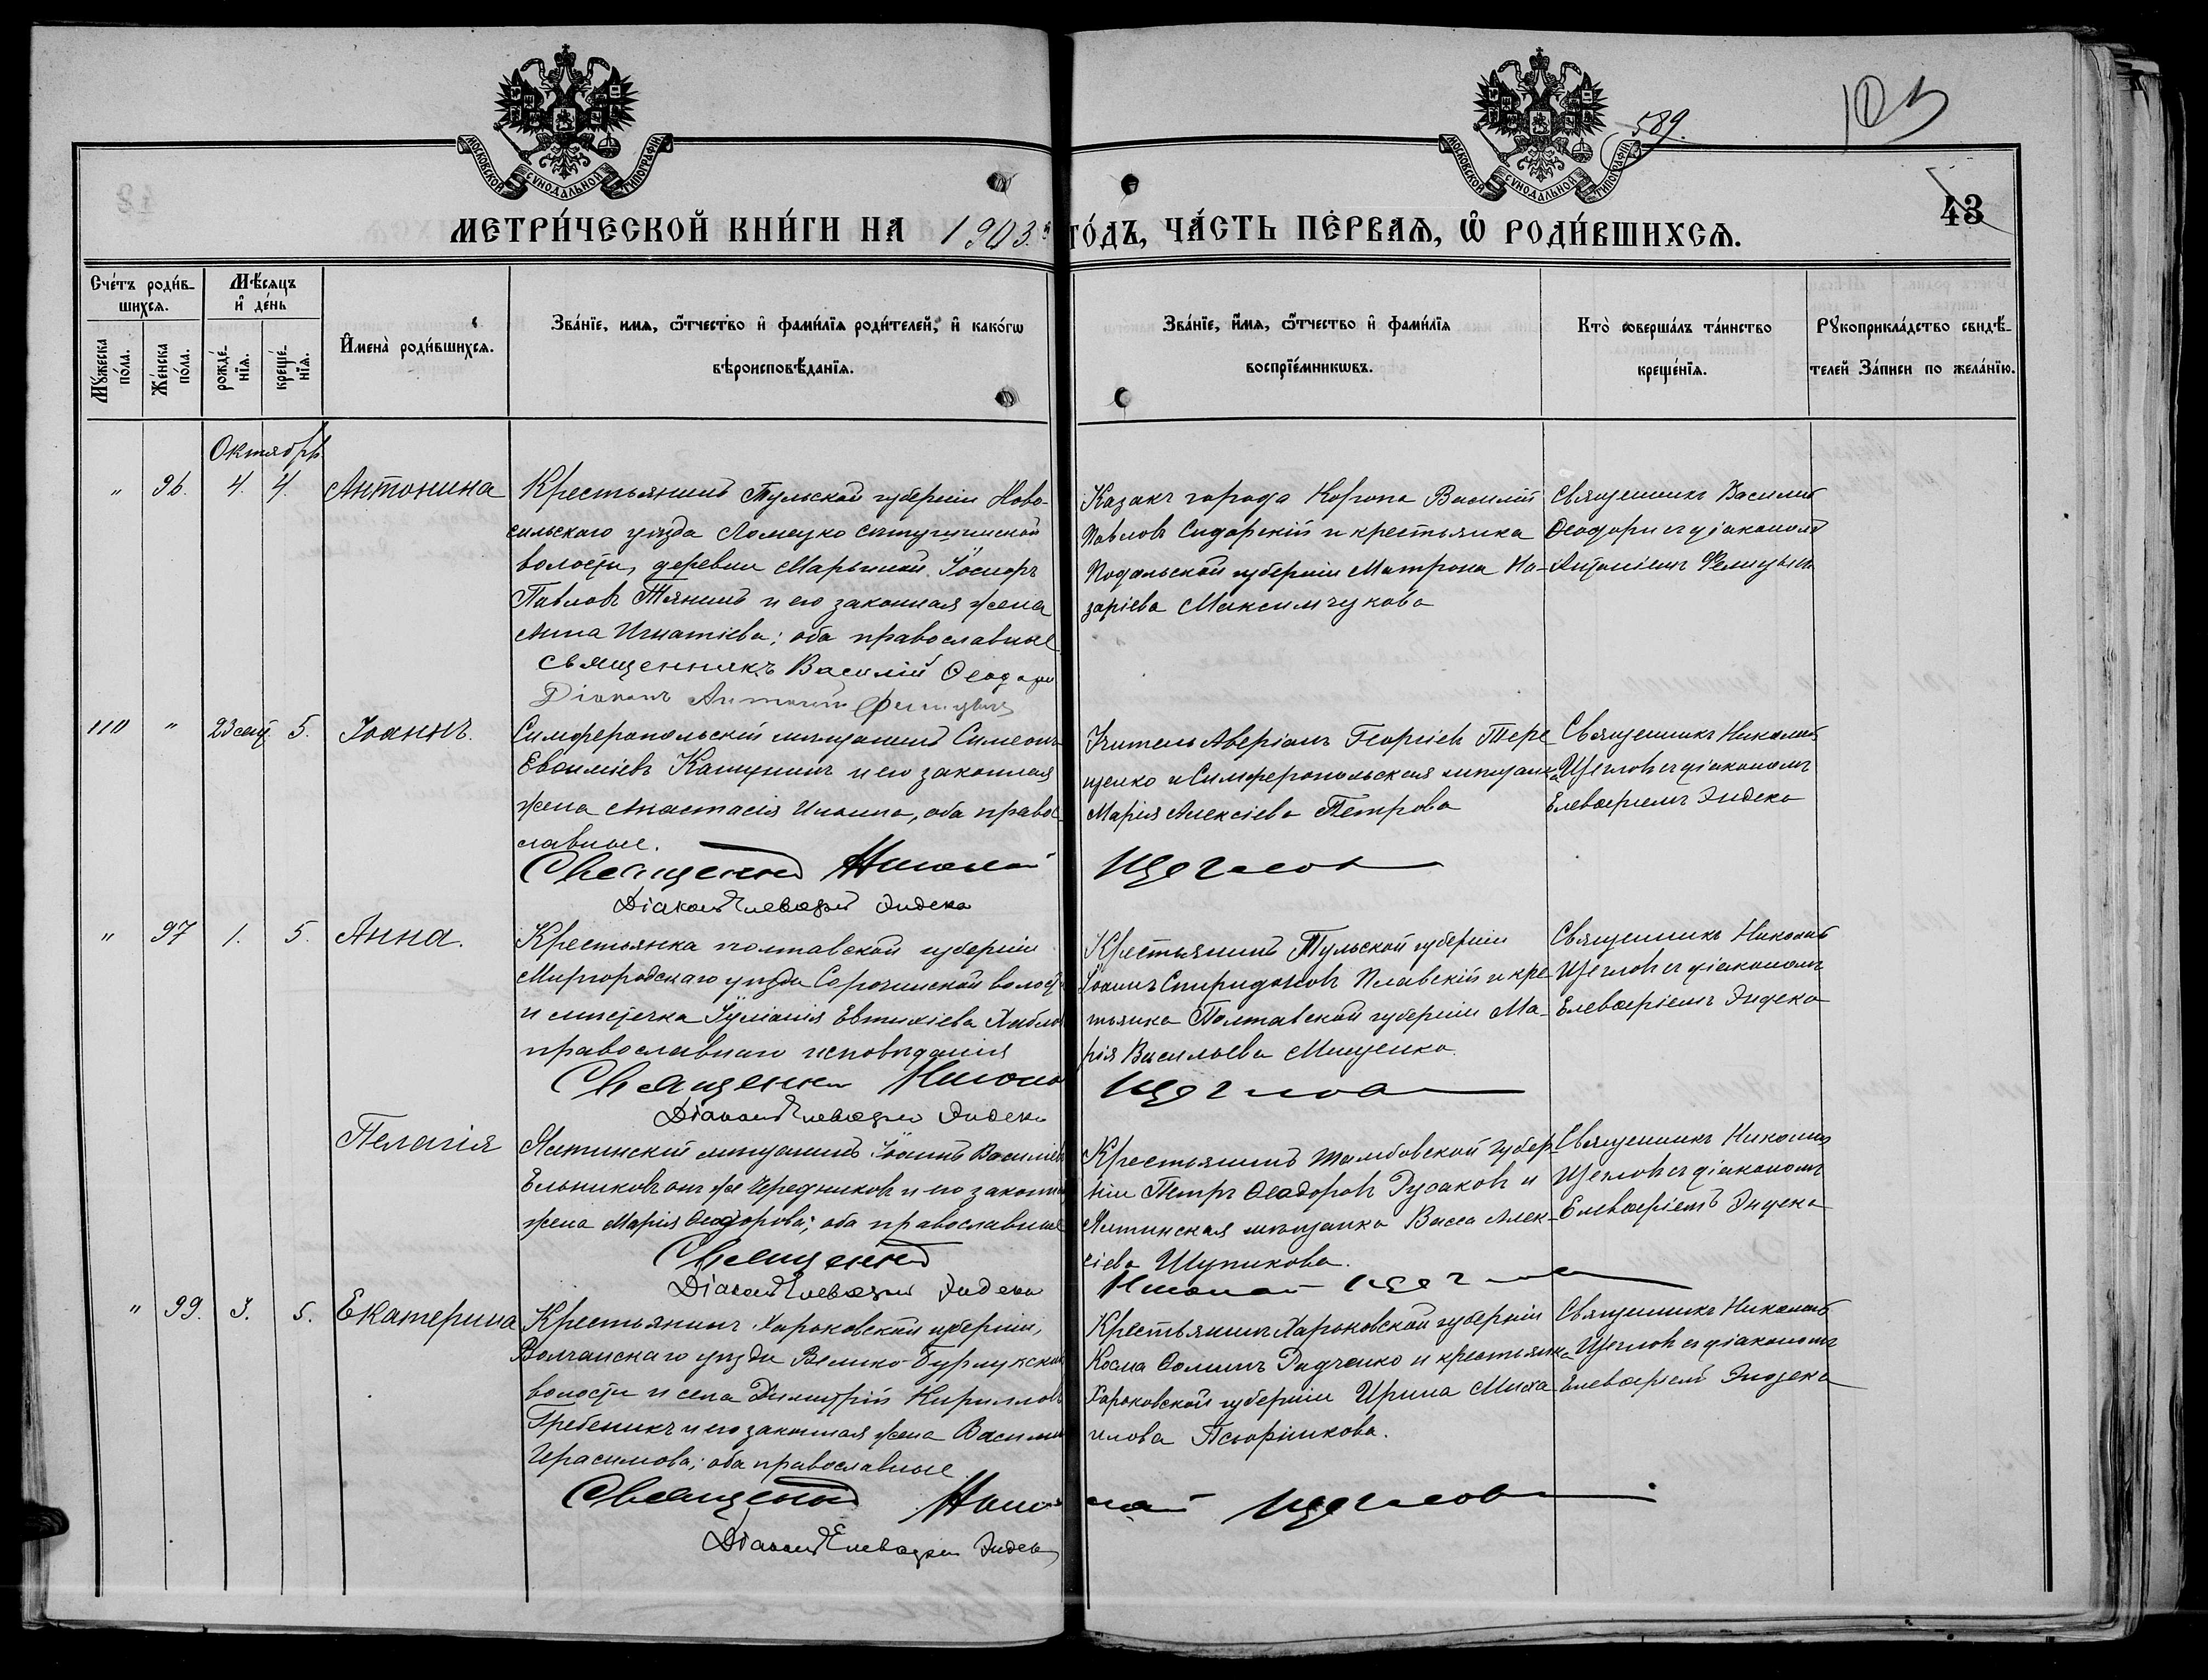 МОСКОВСКОЙ СѴНОДАЛЬНОЙ ТИПОГРАФІИ
МОСКОВСКОЙ СѴНОДАЛЬНОЙ ТИПОГРАФІИ
589.
103
43
МЕТРИ́ЧЕСКОЙ КНИ́ГИ НА 1903 й
ГО́ДЪ, ЧА́СТЬ ПЕ́РВАѦ, Ѡ РОДИ́ВШИХСѦ.
Сче́тъ роди́в-
шихсѧ.
Мѣ́сѧцъ
и де́нь
Мꙋ́жеска по́ла.
Же́нска по́ла.
рожде́нїѧ.
креще́нїѧ.
Имена̀ роди́вшихсѧ.
Зва́нїе, имѧ, ѻ҆́тчество и фами́лїѧ роди́телей, и како́гѡ
вѣроисповѣ́данїѧ.
Зва́нїе, и́мѧ, ѻ҆́тчество и фами́лїѧ
воспрїе́мникѡвъ.
Кто̀ соверша́лъ та́инство
креще́нїѧ.
Рꙋкоприкла́дство свидѣ́-
телей За́писи по жела́нїю.
Октябрь
" 96. 4. 4. Антонина
Крестьянинъ Тульской губерніи Ново-
сильскаго уѣзда
волости, деревни Марьиной Іосифъ
Павловъ Тянинъ и его законная жена
Анна Игнатіева; оба православные
Священникъ Василій Ѳеодори
Діаконъ Антоній
Казакъ города Коропа Василій
Павловъ Сидорскій и крестьянка
Подольской губерніи Матрона На-
заріева Максимчукова
Священникъ Василій
Ѳеодори съ діакономъ
Антоніемъ
110 " 23 сент. 5. Іоаннъ.
Симферопольскій мѣщанинъ Симеонъ
Евѳиміевъ Кашунинъ и его законная
жена Анастасія Ильина, оба правос-
лавные.
Священникъ Николай Щегловъ
Діаконъ Елевѳерій Эндека
Учитель Аверіанъ Георгіевъ Тере-
щенко и Симферопольская мѣщанка
Марія Алексіева Петрова
Священникъ Николай
Щегловъ съ діакономъ
Елевѳеріемъ Эндека
" 97 1. 5. Анна.
Крестьянка полтавской губерніи
Миргородскаго уѣзда Сорочинской волости
и мѣстечка Іуліанія Евтихіева
православнаго исповѣданія
Священникъ Николай Щегловъ
Діаконъ Елевѳерій Эндека
Крестьянинъ Тульской губерніи
Іоаннъ Спиридоновъ Плавскій и крес-
тьянка Полтавской губерніи Ма-
рія Васильева Мищенко.
Священникъ Николай
Щегловъ съ діакономъ
Елевѳеріемъ Эндека
Пелагія
Ялтинскій мѣщанинъ Іоаннъ Василіевъ
Ельниковъ онъ же Чередниковъ и его законная
жена Марія Ѳеодорова; оба православные
Священникъ Николай Щегловъ
Діаконъ Елевѳерій Эндека
Крестьянинъ Тамбовской губер-
ніи Петръ Ѳеодоровъ Русаковъ и
Ялтинская мѣщанка Васса Алек-
сіева Шупикова.
Священникъ Николай
Щегловъ съ діакономъ
Елевѳеріемъ Эндека
" 99. 3. 5. Екатерина
Крестьянинъ Харьковской губерніи,
Волчанскаго уѣзда Велико-Бурлукской
волости и села Димитрій Кирилловъ
Гребеникъ и его законная жена Василиса
Герасимова; оба православные
Священникъ Николай Щегловъ
Діаконъ Елевѳерій Эндека
Крестьянинъ Харьковской губерніи
Косма Ѳоминъ Радченко и крестьянка
Харьковской губерніи Ирина Миха-
илова
Священникъ Николай
Щегловъ съ діакономъ
Елевѳеріемъ Эндека